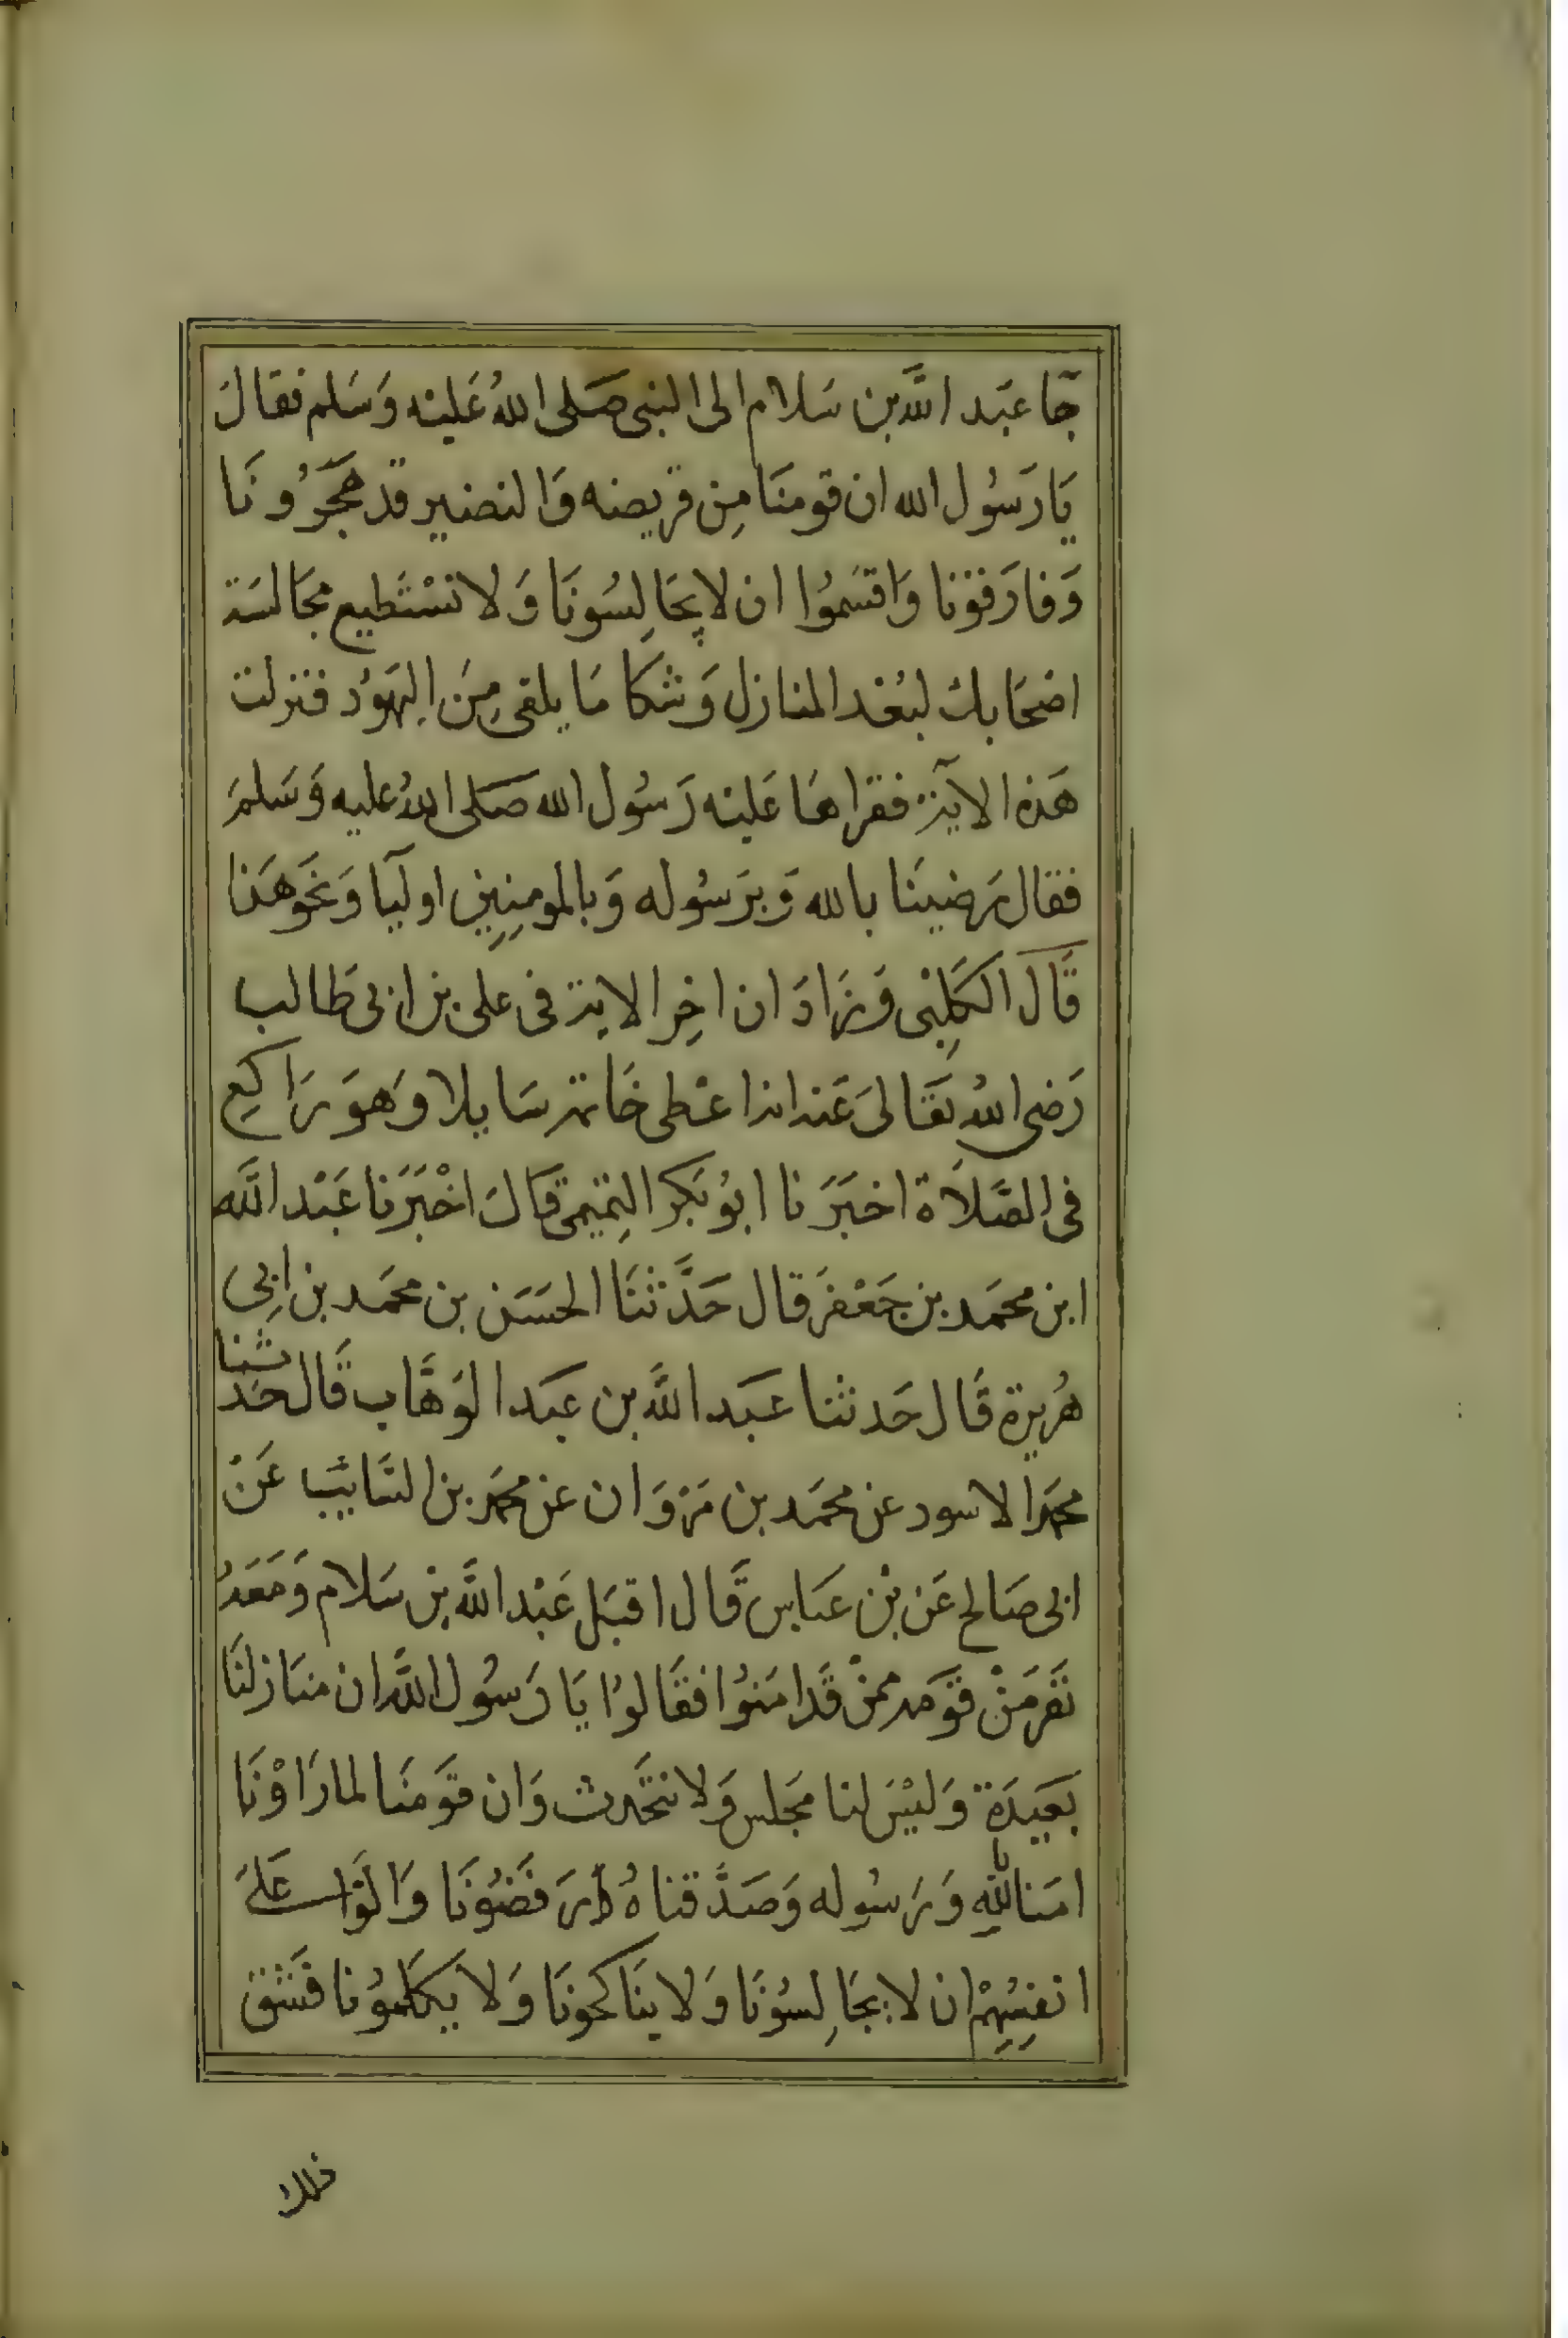 جآ عبد اللَّه بن سَلام الى النبى صَلى اللهُ عَليْه وَسَلم فقالَ
يَارَسُول الله ان قومنَا مِن قريضه وَالنضير قد هَجَرُونَا
وَفارَقوْنا وَاقسَموُا ان لا يجَالِسُونَا وَلا نسْتَطيع مجَالسَة
اصْحَابك لبُعْد المنازل وَشكا مَا يلقى مِنَ اليَهوُد فنزلت
هَذه الآية فقراهَا عَليْه رَسُول الله صَلى اللهُ عليه وَسَلمَ
فقال رَضيْنَا بالله وَبرَسُوله وَبالمومِنِين اوليآ وَنحَو هَذا
قَالَ الكَلِبْى وَزَادَ ان اخِر الاية فى على بن ابى طَالب
رَضى اللهُ تعَالىَ عَنه انه اعْطى خَاتمه سَايلا وَهوَ رَاكِع
فى الصَّلاَة اخبَرَنا ابوُ بَكر التِميمى قَالَ اخْبَرَنا عَبْد اللَّه
ابن محمَد بن جَعْفرَ قال حَدَّثنَا الحسَن بن محمَد بن ابِى
هُريرة قَال حَدثنا عَبَد اللَّه بن عَبَد الوَهَّاب قَال حَدثنا
محمَد الاسود عن محمَد بن مَرْوَان عَن محمَد بن السَّايِب عَنْ
ابى صَالح عَن بْن عَبَاس قَال اقبَل عَبْد اللَّه بن سَلام وَمَعَهُ
نَفر مَنْ قَومه ممنْ قَد امَنوُا فقَالوُا يَا رَسُول اللَّه ان منَازلنَا
بَعَيدَة وَليْسَ لنا مَجلس وَلا نتحَدث وَان قَومنَا لما رَاوْنَا
امَنا بالله وَرَسُوله وَصَدَّقناهُ رَفَضوُنَا وَالَوْا عَلىَ
انفِسُهِمْ ان لا يجَالِسوُنَا وَلا ينَاكحُونَا وَلا يَكلموُنا فَشَقَ
ذلك